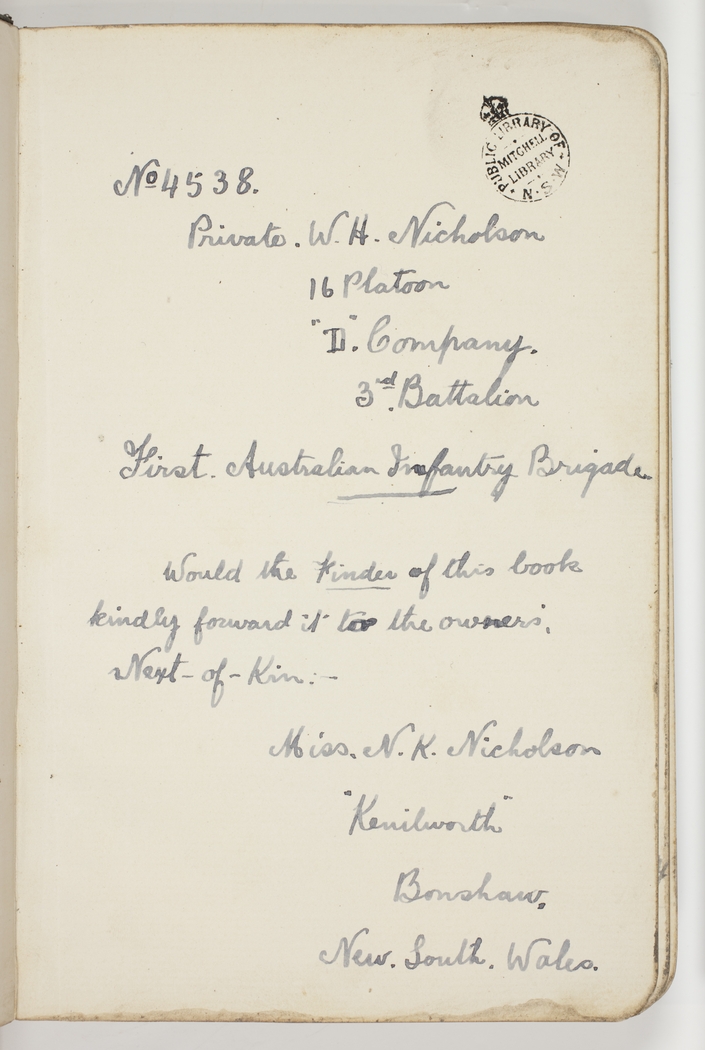 PUBLIC LIBRARY OF N.S.W.
MITCHELL
LIBRARY
No 4538.
Private. W. H. Nicholson
16 Platoon
"D". Company.
3rd. Battalion
First. Australian Infantry Brigade.
Would the Finder of this book
kindly forward it to the owners',
Next-of-Kin:-
Miss. N. K. Nicholson
"Kenilworth"
Bonshaw,
New. South. Wales.